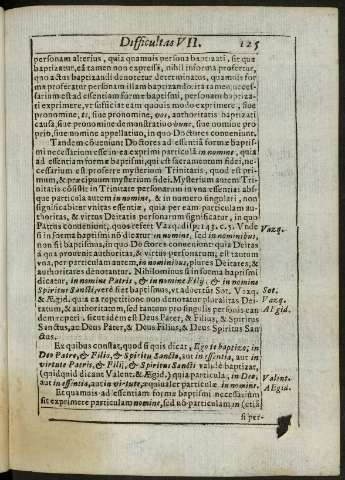 Difficultas VII. 125
personam alterius, quia quamuis persona baptizati, sit quę
baptizatur, ea tamen non expressa, nihil informa profertur,
quo actus baptizandi denotetur determinatus, quamuis for
ma proferatur personam illam baptizando, ita tamen, neces-
sarium est ad essentiam formę baptismi, personam baptiza-
ti exprimere, vt sufficiat eam quouis modo exprimere, siue
pronomine, te, siue pronomine, vos, authoritatis baptizati
causa, siue pronomine demonstratiuo hunc, siue nomine pro
prio, siue nomine appellatiuo, in quo Doctores conueniunt.
Tandem cōueniunt Doctores ad essentiā formæ baptis-
mi necessarium esse in ea exprimi particulā in nomine, quia
ad essentiam formæ baptismi, qui est sacramentum fidei, ne-
cessarium est proferre mysterium Trinitatis, quod est pri-
mum, & præcipuum mysterium fidei. Mysterium autem Tri-
nitatis cōsistit in Trinitate personarum in vna essentia: abs-
que particula autem in nomine, & in numero singulari, non
significabitur vnitas essentię, quia per eam particulam au-
thoritas, & virtus Deitatis personarum significatur, in quo
Patres conueniunt, quos refert Vazq. disp. 143. c. 5. Vnde
si in forma baptismi nō dicatur in nomine, sed in nominibus,
non fit baptismus, in quo Doctores conueniunt: quia Deitas
á qua prouenit authoritas, & virtus personarum, est tantum
vna, per particulam autem, in nominibus, plures Deitates, &
authoritates denotantur. Nihilominus si in forma baptismi
dicatur, in nomine Patris, & in nomine Filij, & in nomine
Spiritus Sancti, verè fiet baptismus, vt aduertūt Sot. Vazq.
& Ægid. quia ea repetitione non denotatur pluralitas Dei-
tatum, & authoritatum, sed tantum pro singulis personis ean
dem repeti, sicut idem est Deus Pater, & Filius, & Spiritus
Sanctus, ac Deus Pater, & Deus Filius, & Deus Spiritus San
ctus.
Ex quibus constat, quod si quis dicat, Ego te baptizo, in
Deo Patre, & Filio, & Spiritu Sancto, aut in essentia, aut in
virtute Patris, & Filij, & Spiritus Sancti validè baptizat,
(quidquid dicant Valent. & Ægid.) quia particula, in Deo,
aut in essentia, aut in virtute, æquiualet particulæ in nomine.
Et quamuis ad essentiam formæ baptismi necessarium
sit exprimere particulam nomine, sed nō particulam, in (etiā
si per-
Vazq.
Sot.
Vazq.
AEgid.
Valent.
AEgid.